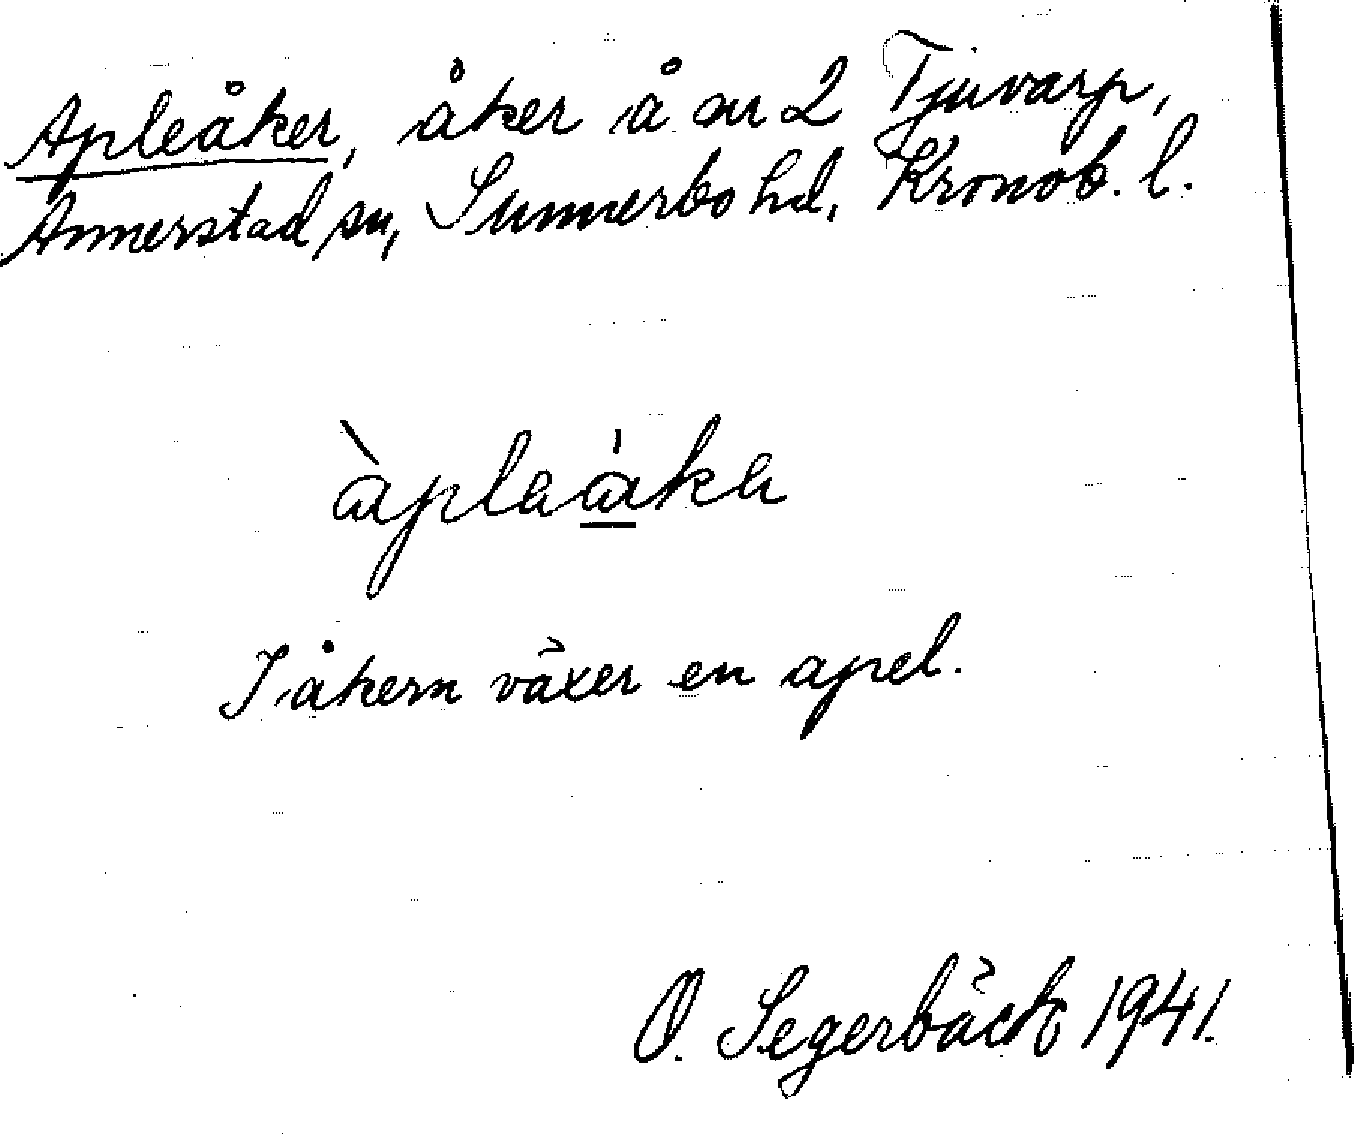 Apleåker, åker å nr 2 Tjuvarp,
Annerstad sn, Sunnerbo hd, Kronob. l.
àplaáka
I åkern växer en apel.
O. Segerbäck 1941.